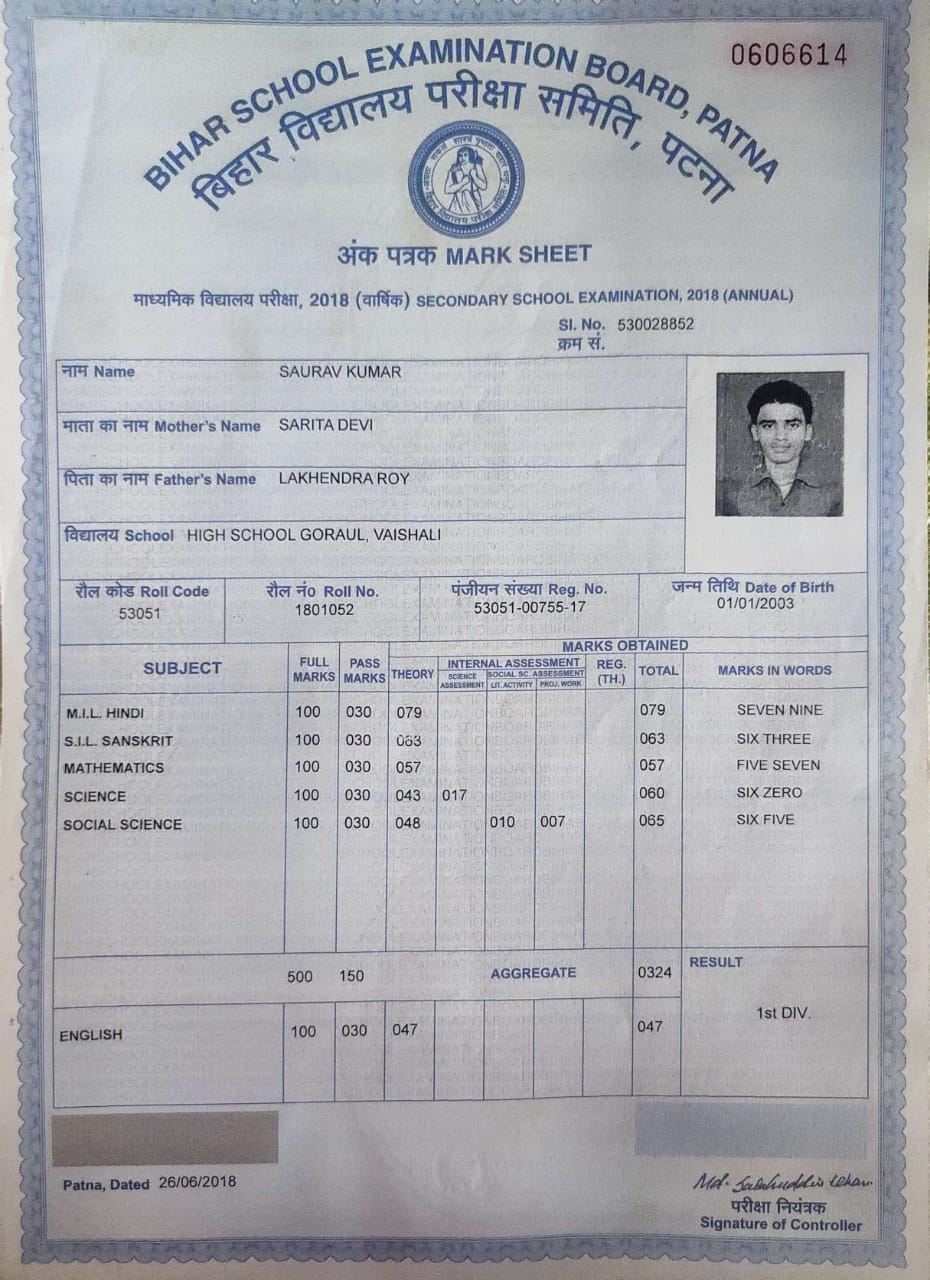 0606614
BIHAR SCHOOL EXAMINATION BOARD, PATNA
बिहार विद्यालय परीक्षा समिति, पटना
अंक पत्रक MARK SHEET
माध्यमिक विद्यालय परीक्षा, 2018 (वार्षिक) SECONDARY SCHOOL EXAMINATION, 2018 (ANNUAL)
Sl. No. 530028852
क्रम सं.
नाम Name SAURAV KUMAR
माता का नाम Mother's Name SARITA DEVI
पिता का नाम Father's Name LAKHENDRA ROY
विद्यालय School HIGH SCHOOL GORAUL, VAISHALI
रौल कोड Roll Code रौल नं० Roll No. पंजीयन संख्या Reg. No. जन्म तिथि Date of Birth
53051 1801052 53051-00755-17 01/01/2003
MARKS OBTAINED
SUBJECT FULL MARKS PASS MARKS THEORY INTERNAL ASSESSMENT REG. (TH.) TOTAL MARKS IN WORDS
SCIENCE ASSESSMENT SOCIAL SC. ASSESSMENT
LIT. ACTIVITY PROJ. WORK
M.I.L. HINDI 100 030 079 079 SEVEN NINE
S.I.L. SANSKRIT 100 030 063 063 SIX THREE
MATHEMATICS 100 030 057 057 FIVE SEVEN
SCIENCE 100 030 043 017 060 SIX ZERO
SOCIAL SCIENCE 100 030 048 010 007 065 SIX FIVE
500 150 AGGREGATE 0324 RESULT
1st DIV.
ENGLISH 100 030 047 047
Patna, Dated 26/06/2018
परीक्षा नियंत्रक
Signature of Controller